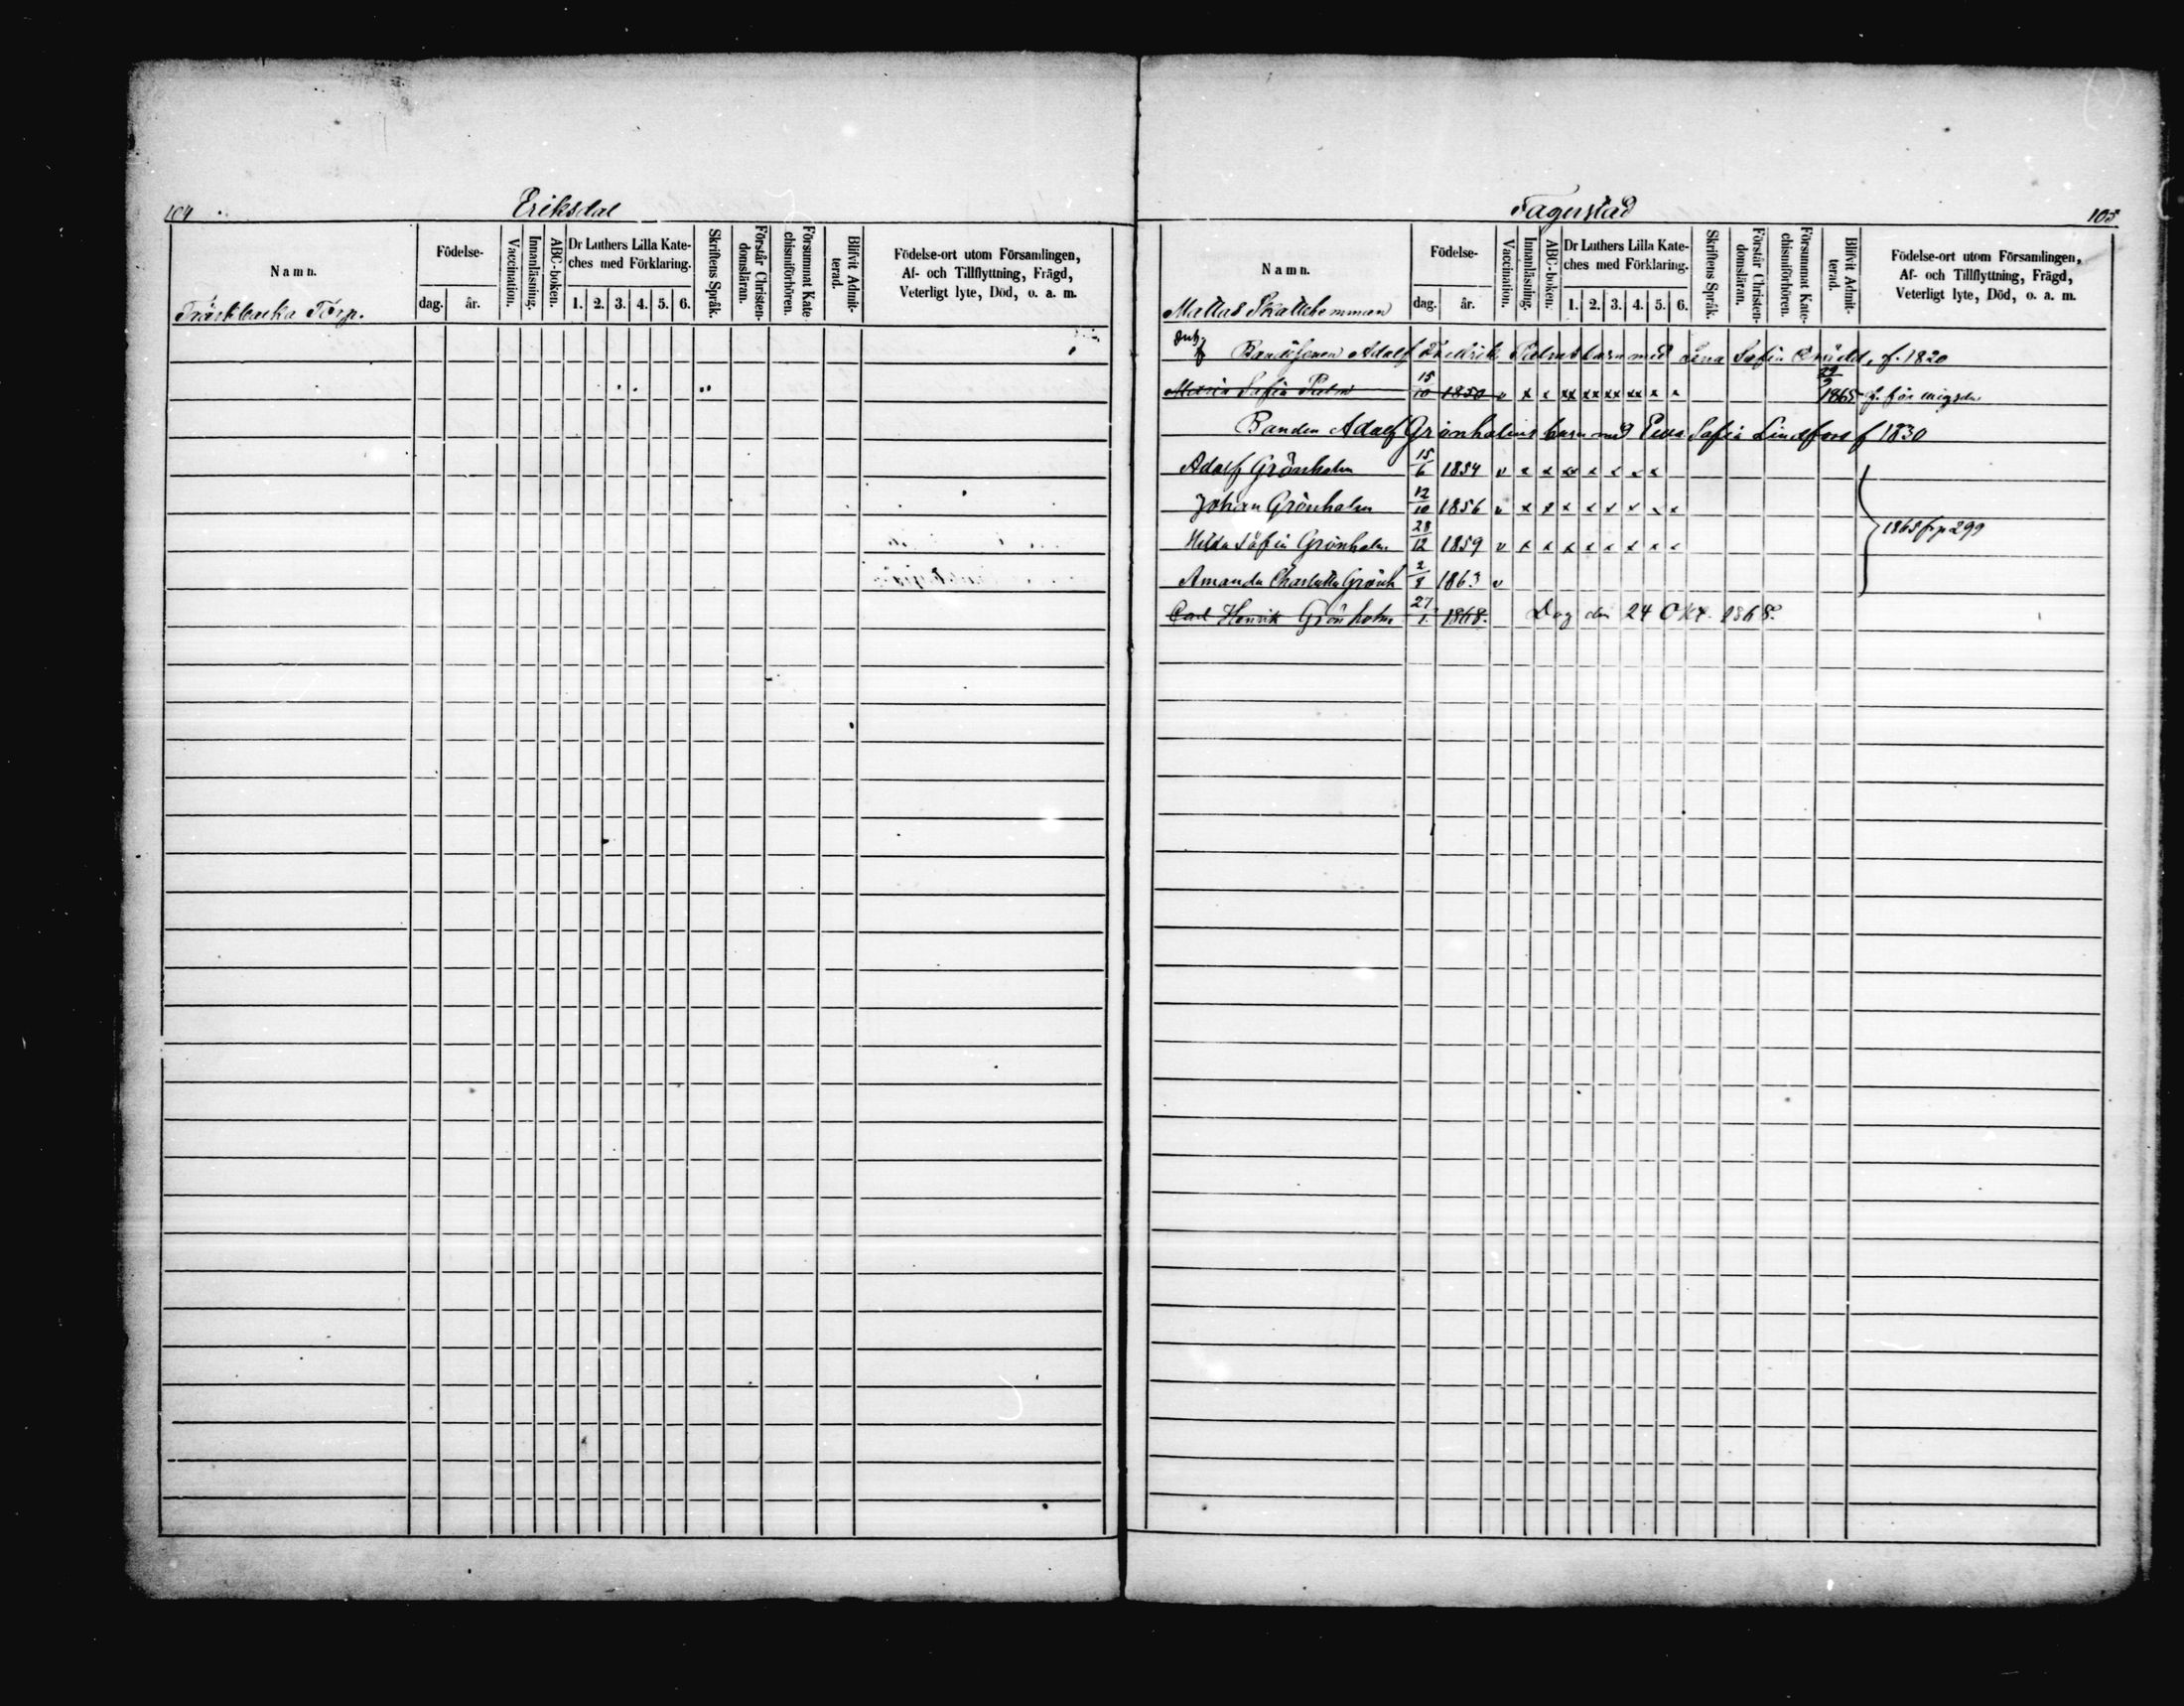 104 Eriksdal
Namn.
Träskbacka Torp.
Födelse-
dag. år.
Vaccination.
Innanläsning.
ABC-boken.
Dr Luthers Lilla Kate-
ches med Förklaring.
1. 2. 3. 4. 5. 6.
Skriftens Språk.
Förstår Christen-
domsläran.
Försummat Kate
chismiförhören.
Blifvit Admit-
terad.
Födelse-ort utom Församlingen,
Af- och Tillflyttning, Frägd,
Veterligt lyte, Död, o. a. m.
Fagerstad 105
Namn.
Mattas Skattehemman
Födelse-
dag. år.
Vaccination.
Innanläsning.
ABC-boken.
Dr Luthers Lilla Kate-
ches med Förklaring.
1. 2. 3. 4. 5. 6.
Skriftens Språk.
Förstår Christen-
domsläran.
Försummat Kate-
chismiförhören.
Blifvit Admit-
terad.
Födelse-ort utom Församlingen,
Af- och Tillflyttning, Frägd,
Veterligt lyte, Död, o. a. m.
Adolf Fredrik Palms barn med Lena Sofia f. 1820
Maria Sofia Palm 15/10 1850 v x x xx xx xx xx x x 29/9 1865
Bonden Adolf Grönholms barn med Eva Sofia Lindfors f 1830
Adolf Grönholm 15/6 1854 v x x xx x x x x
Johan Grönholm 12/10 1856 v x x x x x x x x
Hilda Sofia Grönholm 28/12 1859 v x x x x x x x x
1868 fr p 299
Amanda Charlotta Grönh 2/8 1863 v
Carl Henrik Grönholm 27/1. 1868. Dog den 24 Okt. 1868.